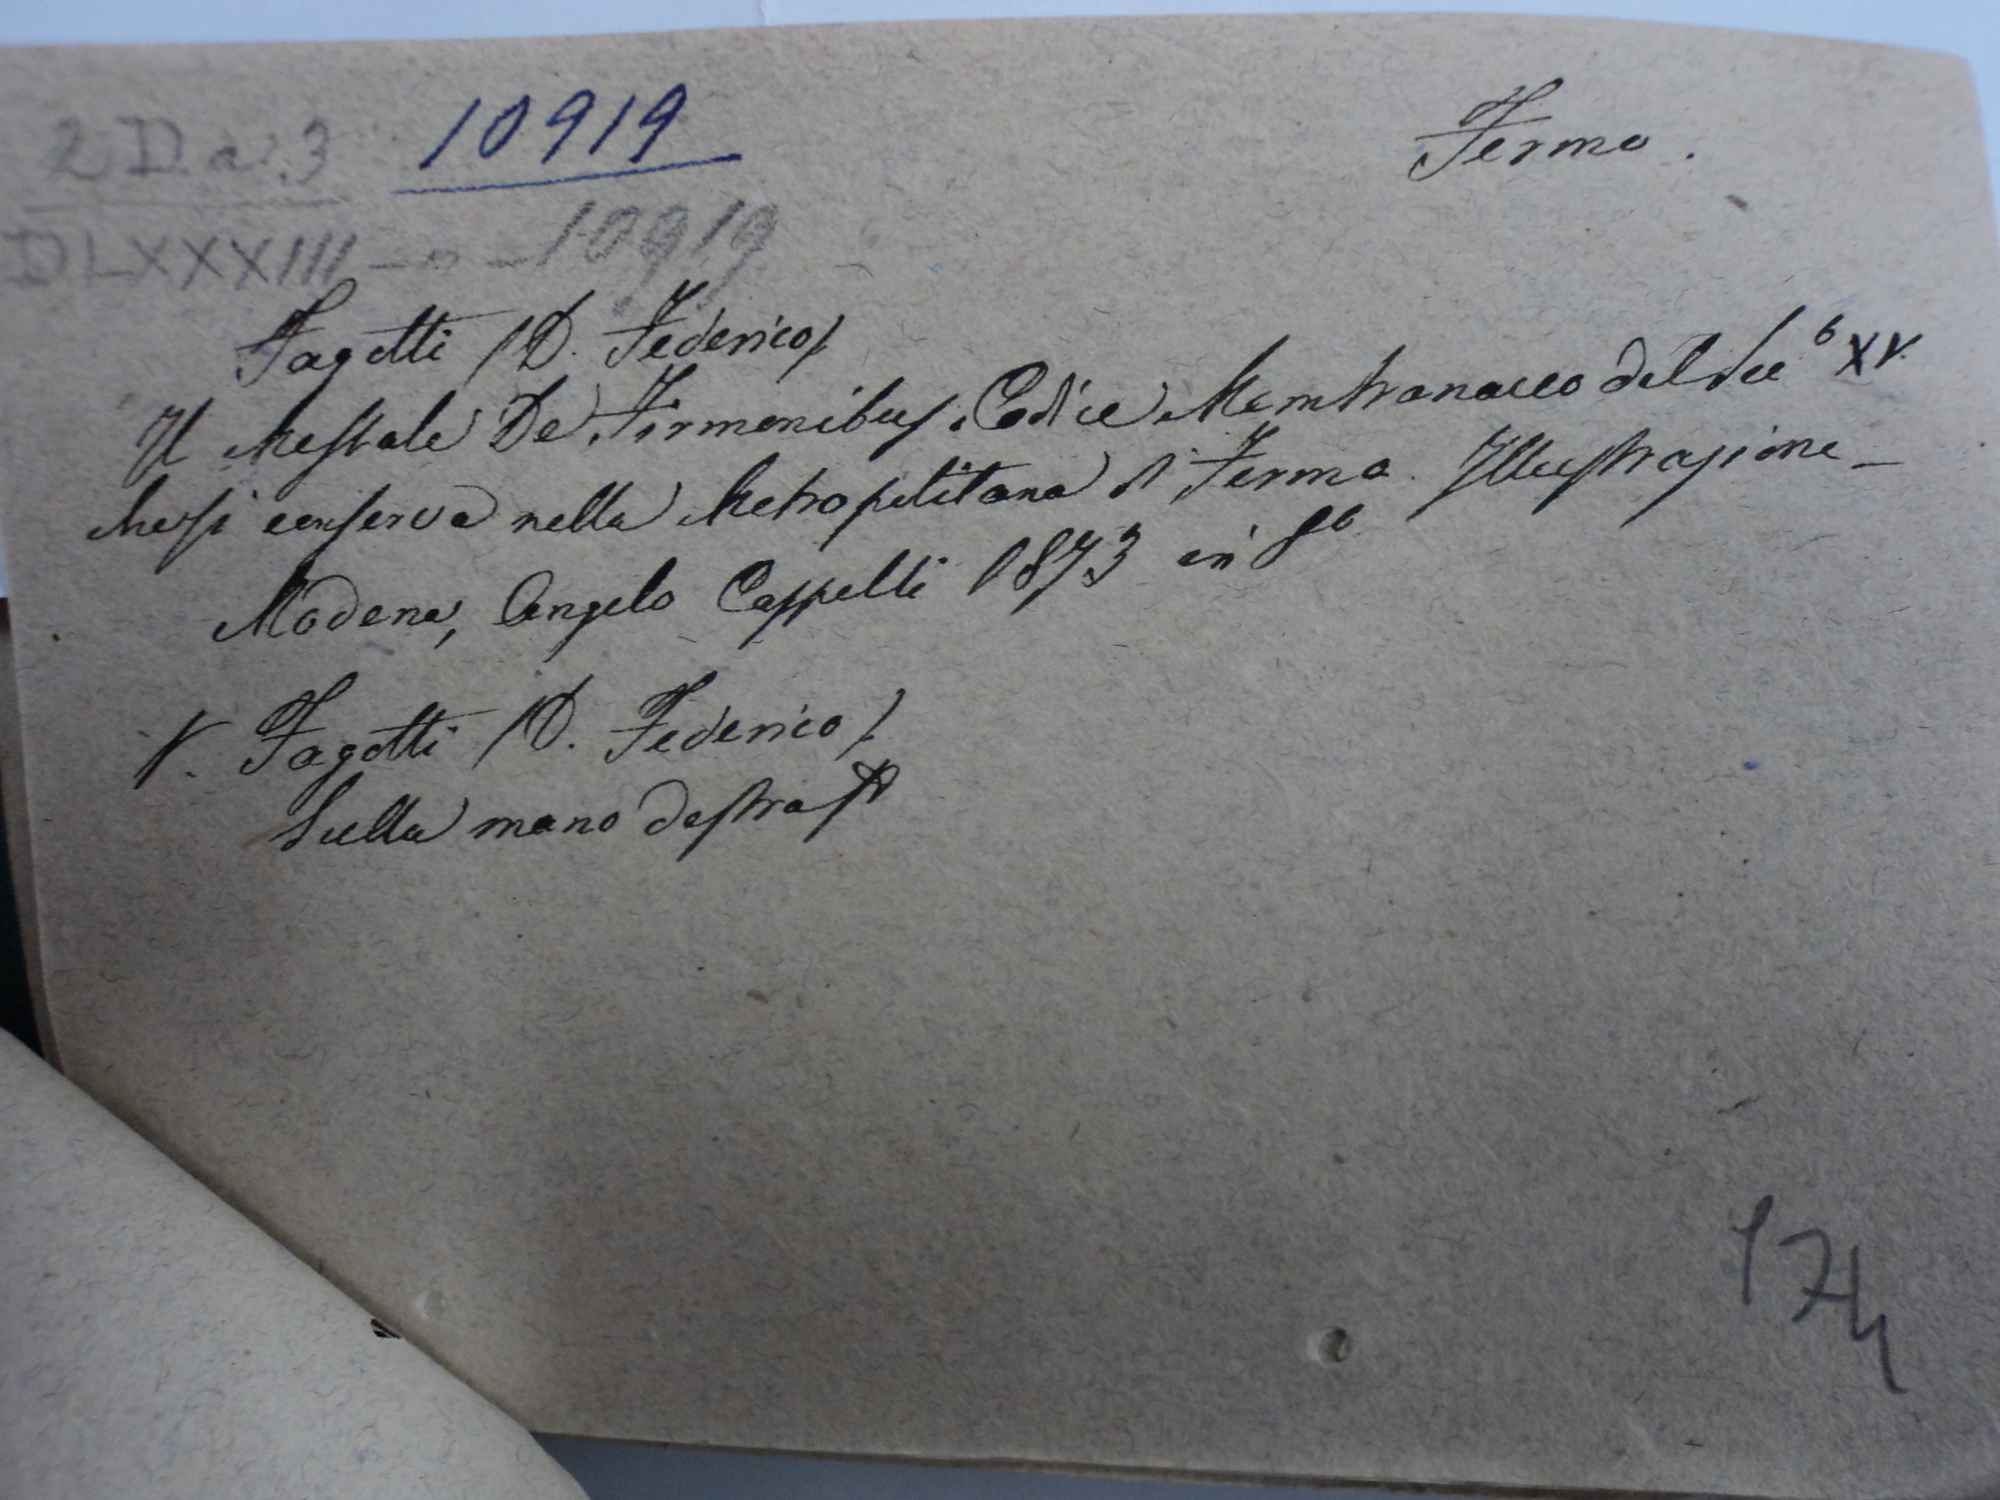 2 D. a. 3
10919
Fermo.
DLXXXIII - n - 10919
Fagotti (D. Federico).
Il Messale De Firmonibus. Codice Membranaceo del Sec.º XV.
che si conserva nella Metropolitana di Fermo. Illustrazione -
Modena, Angelo Cappelli 1873 in 8º
V. Fagotti (D. Federico).
Sulla mano destra
174